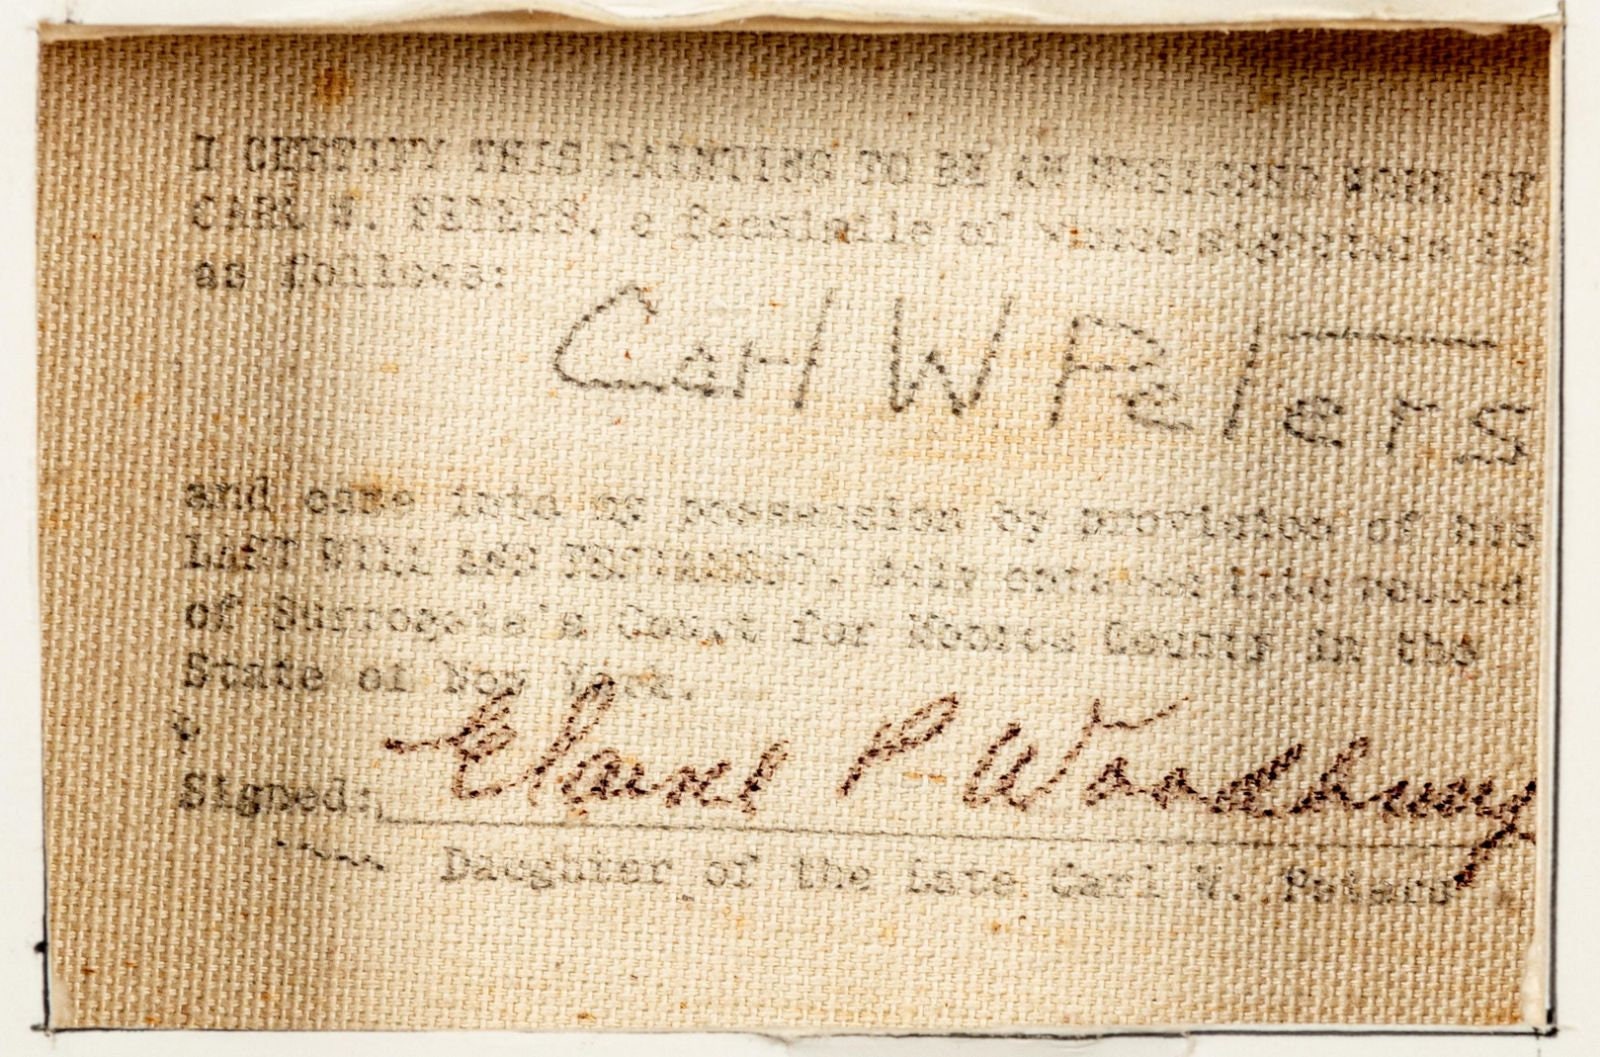 I CERTIFY THIS PAINTING TO BE AN UNSIGNED WORK OF
CARL W. PETERS, a facsimile of whose signature is
as follows:
Carl W Peters
and came into my possession by provision of his
LAST WILL AND TESTAMENT, duly entered into record
of Surrogate's Court for Monroe County in the
State of New York.
Signed:
Elaine P Woodbury
Daughter of the Late Carl W. Peters